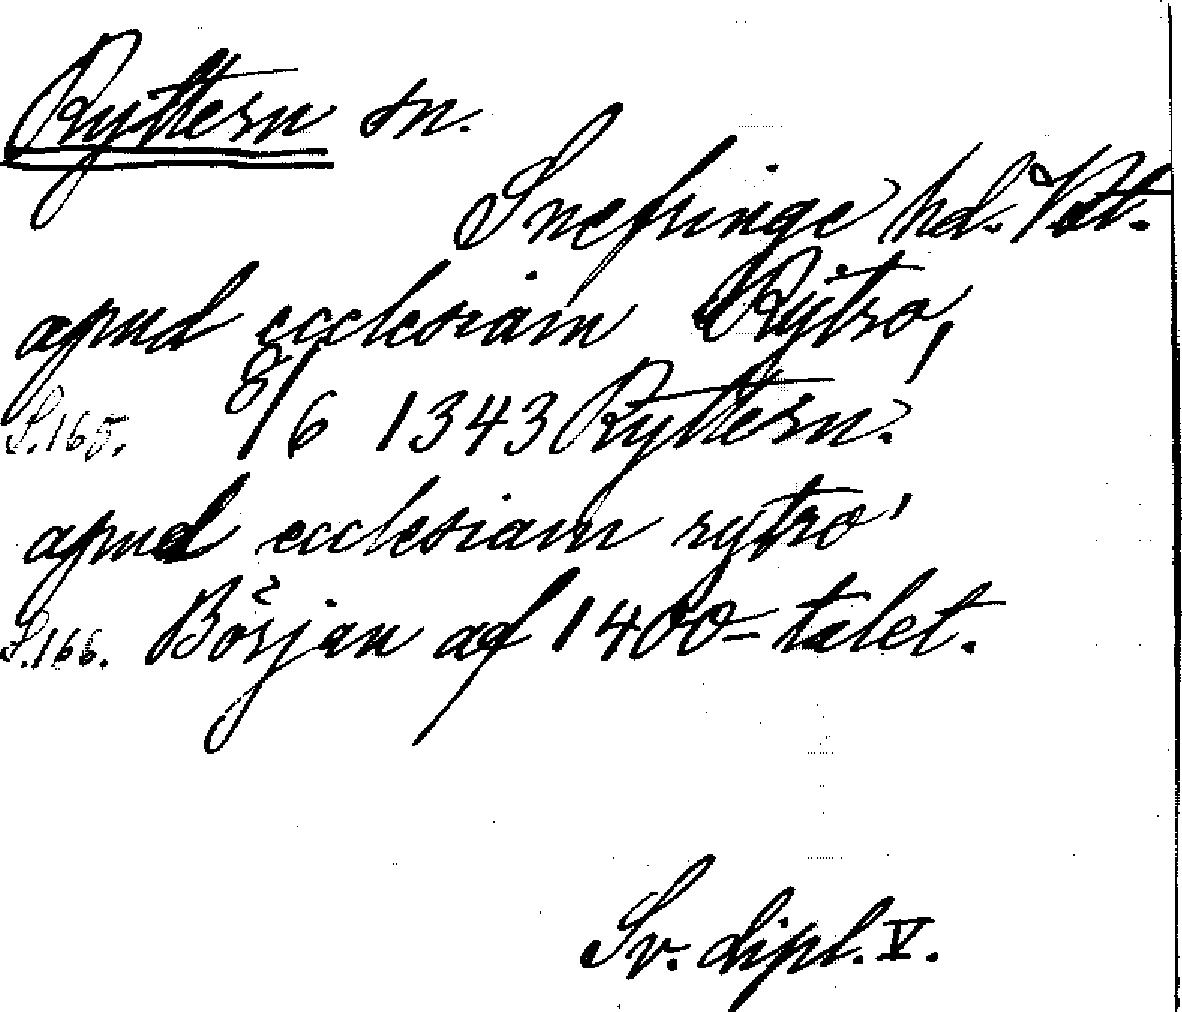 Ryttern sn.
Snefringe hd. Vstl.
apud ecclesiam Rytro,
S.165. 8/6 1343 Ryttern.
apud ecclesiam rytro
S.166. Början af 1400-talet.
Sv. dipl. V.